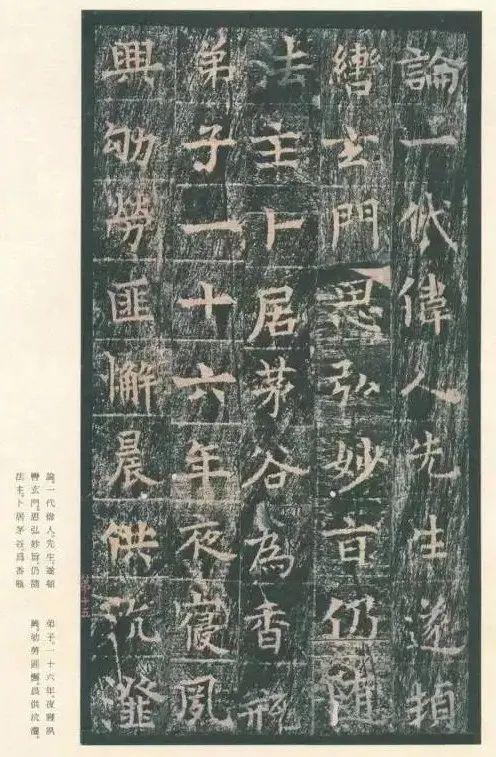 論一代偉人先生遂頓
轡玄門思弘妙旨仍隨
法主卜居茅谷為香瓶
弟子一十六年夜寢夙
興劬勞匪懈晨供沆瀣
論，一代偉人。先生遂頓
轡玄門，思弘妙旨，仍隨
法主，卜居茅谷，爲香瓶
弟子，一十六年，夜寢夙
興，劬勞匪懈，晨供沆瀣。